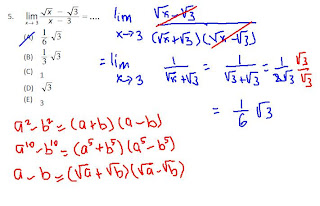 5. lim x→3 (√x − √3)/(x − 3) = ....
(A) 1/6 √3
(B) 1/3 √3
(C) 1
(D) √3
(E) 3
lim x→3 (√x − √3)/((√x + √3)(√x − √3))
= lim x→3 1/(√x + √3) = 1/(√3 + √3) = 1/(2√3) √3/√3
= 1/6 √3
a² − b² = (a + b)(a − b)
a¹⁰ − b¹⁰ = (a⁵ + b⁵)(a⁵ − b⁵)
a − b = (√a + √b)(√a − √b)